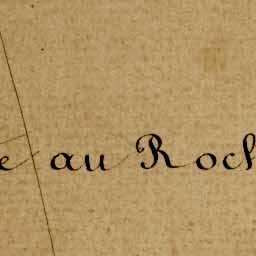 e au Roch